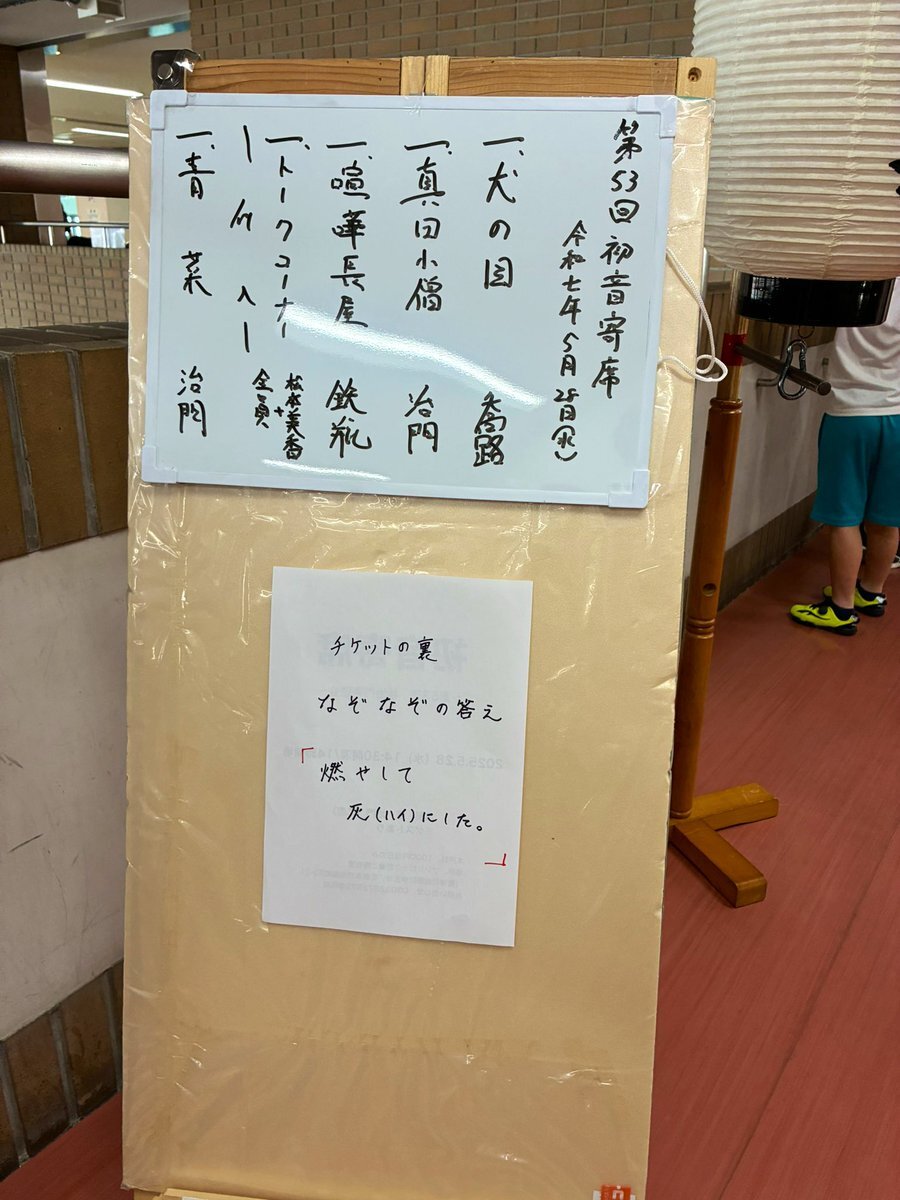 第53回初音寄席
令和七年5月28日(水)
一、犬の目 喬路
一、真田小僧 治門
一、喧嘩長屋 鉄瓶
一、トークコーナー 松本美香+全員
ー仲入ー
一、青菜 治門
チケットの裏
なぞなぞの答え
「燃やして
灰(ハイ)にした。
」